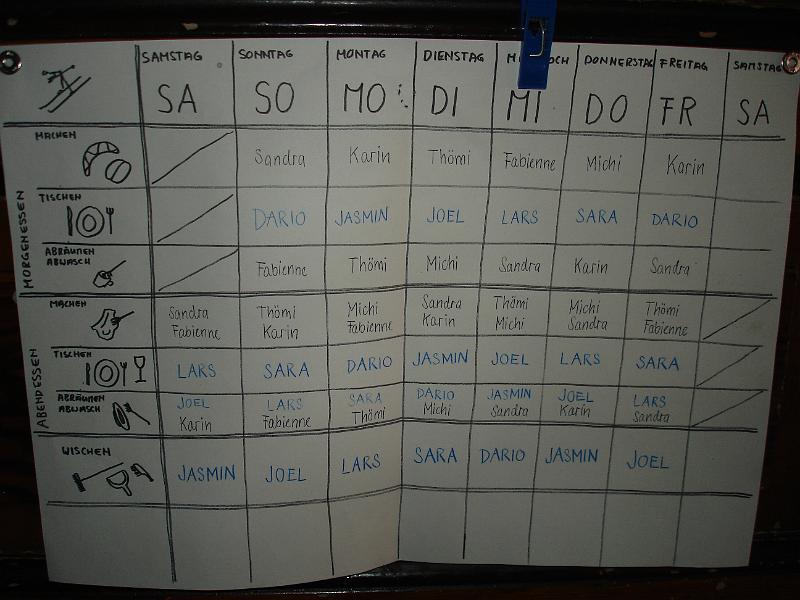 SAMSTAG SONNTAG MONTAG DIENSTAG DONNERSTAG FREITAG SAMSTAG
SA SO MO DI MI DO FR SA
MORGENESSEN
MACHEN
Sandra Karin Thömi Fabienne Michi Karin
TISCHEN
DARIO JASMIN JOEL LARS SARA DARIO
ABRÄUMEN
ABWASCH
Fabienne Thömi Michi Sandra Karin Sandra
ABENDESSEN
MACHEN
Sandra Thömi Michi Sandra Thömi Michi Thömi
Fabienne Karin Fabienne Karin Michi Sandra Fabienne
TISCHEN
LARS SARA DARIO JASMIN JOEL LARS SARA
ABRÄUMEN
ABWASCH
JOEL LARS SARA DARIO JASMIN JOEL LARS
Karin Fabienne Thömi Michi Sandra Karin Sandra
WISCHEN
JASMIN JOEL LARS SARA DARIO JASMIN JOEL